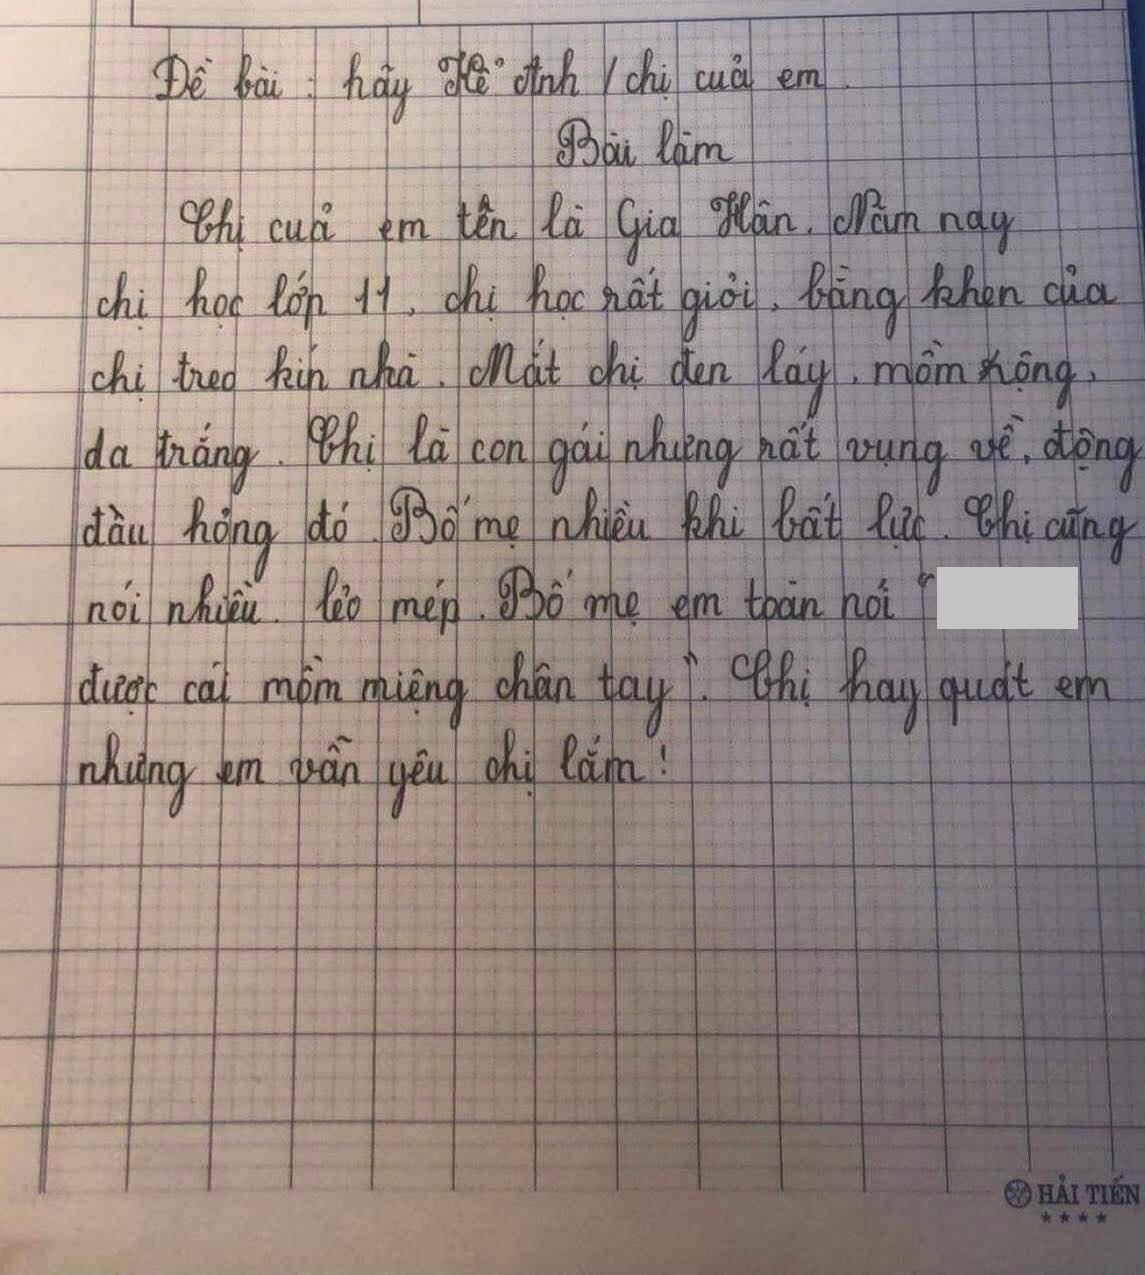 Đề bài : hãy Kể Anh / chị của em.
Bài làm
Chị của em tên là Gia Hân. Năm nay
chị học lớp 11, chị học rất giỏi, bằng khen của
chị treo kín nhà. Mắt chị đen láy, mồm rộng,
da trắng. Chị là con gái nhưng rất vụng về, động
đâu hỏng đó. Bố mẹ nhiều khi bất lực. Chị cũng
nói nhiều. lẻo mép. Bố mẹ em toàn nói "
được cái mồm miệng chân tay". Chị hay quát em
nhưng em vẫn yêu chị lắm!
HẢI TIẾN